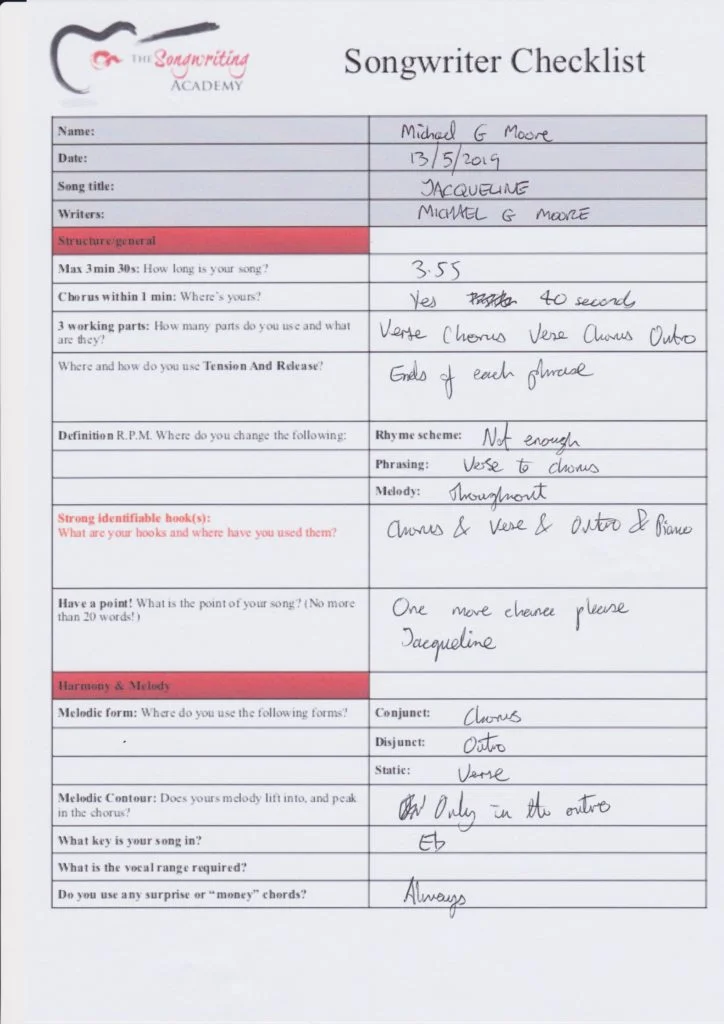 THE Songwriting
ACADEMY
Songwriter Checklist
Name: Michael G Moore
Date: 13/5/2019
Song title: JACQUELINE
Writers: MICHAEL G MOORE
Structure/general
Max 3min 30s: How long is your song? 3.55
Chorus within 1 min: Where's yours? Yes 40 seconds
3 working parts: How many parts do you use and what
are they?
Verse Chorus Verse Chorus Outro
Where and how do you use Tension And Release?
Ends of each phrase
Definition R.P.M. Where do you change the following:
Rhyme scheme: Not enough
Phrasing: Verse to chorus
Melody: Throughout
Strong identifiable hook(s):
What are your hooks and where have you used them?
Chorus & Verse & Outro & Piano
Have a point! What is the point of your song? (No more
than 20 words!)
One more chance please
Jacqueline
Harmony & Melody
Melodic form: Where do you use the following forms?
Conjunct: Chorus
Disjunct: Outro
Static: Verse
Melodic Contour: Does yours melody lift into, and peak
in the chorus?
Only in the outro
What key is your song in? Eb
What is the vocal range required?
Do you use any surprise or "money" chords? Always